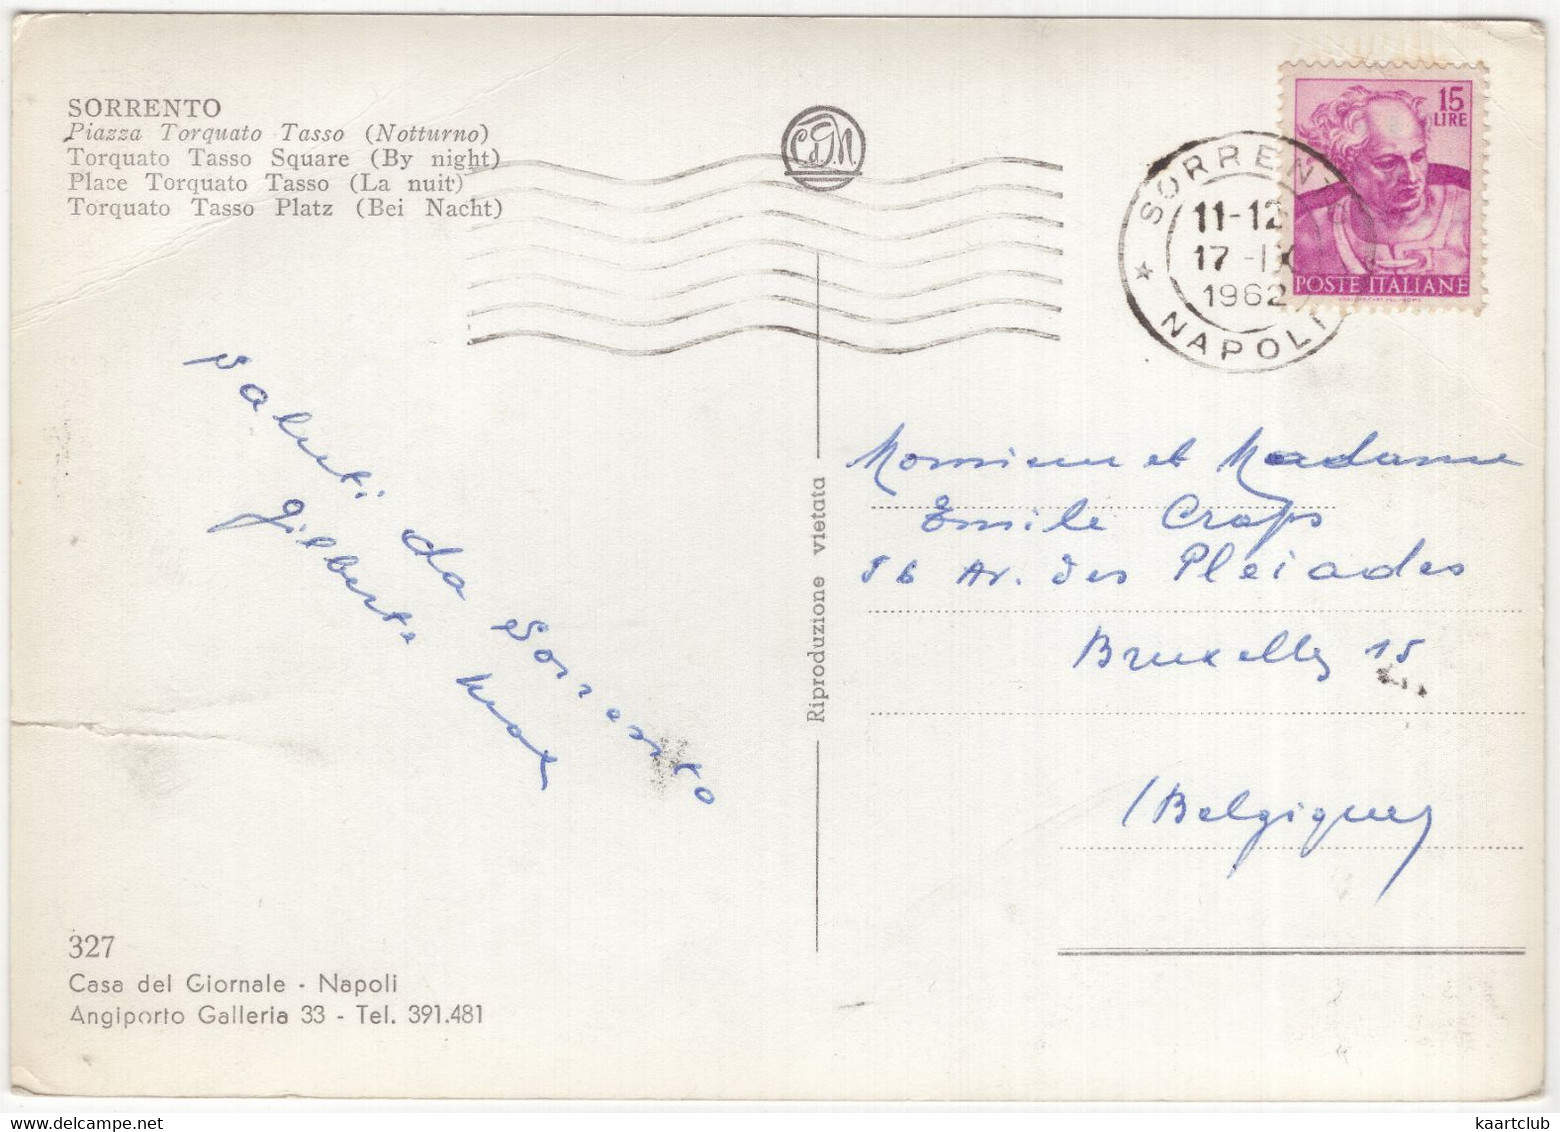 SORRENTO
Piazza Torquato Tasso (Notturno)
Torquato Tasso Square (By night)
Place Torquato Tasso (La nuit)
Torquato Tasso Platz (Bei Nacht)
C.d.G.N.
SORRENT
11-12
17-IX
1962
NAPOLI
15
LIRE
POSTE ITALIANE
saluti da Sorrento
Gilberte Max
Riproduzione vietata
Monsieur et Madame
Emile Craps
56 Av. des Pleiades
Bruxelles 15
(Belgique)
327
Casa del Giornale - Napoli
Angiporto Galleria 33 - Tel. 391.481
kaartclub